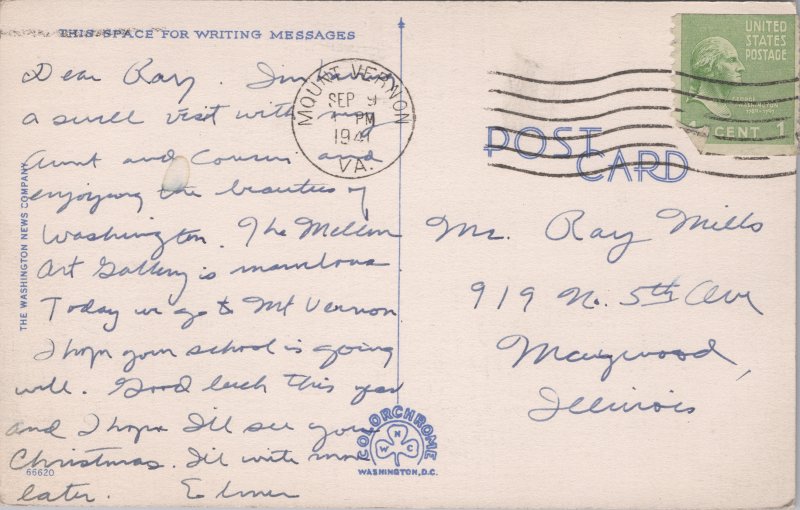 THIS SPACE FOR WRITING MESSAGES
Dear Ray. I'm having
a swell visit with my
Aunt and Cousin and
enjoying the beauties of
Washington. The Mellon
Art Gallery is marvelous
Today we go to Mt Vernon
I hope your school is going
well. Good luck this year
and I hope I'll see you
Christmas. I'll write more
later. Elmer
66620
THE WASHINGTON NEWS COMPANY
MOUNT VERNON
SEP 9
PM
1941
VA.
UNITED
STATES
POSTAGE
GEORGE
WASHINGTON
1789-1797
1 CENT 1
POST
CARD
Mr. Ray Mills
919 N. 5th Ave
Maywood,
Illinois
COLORCHROME
W N C
WASHINGTON, D.C.